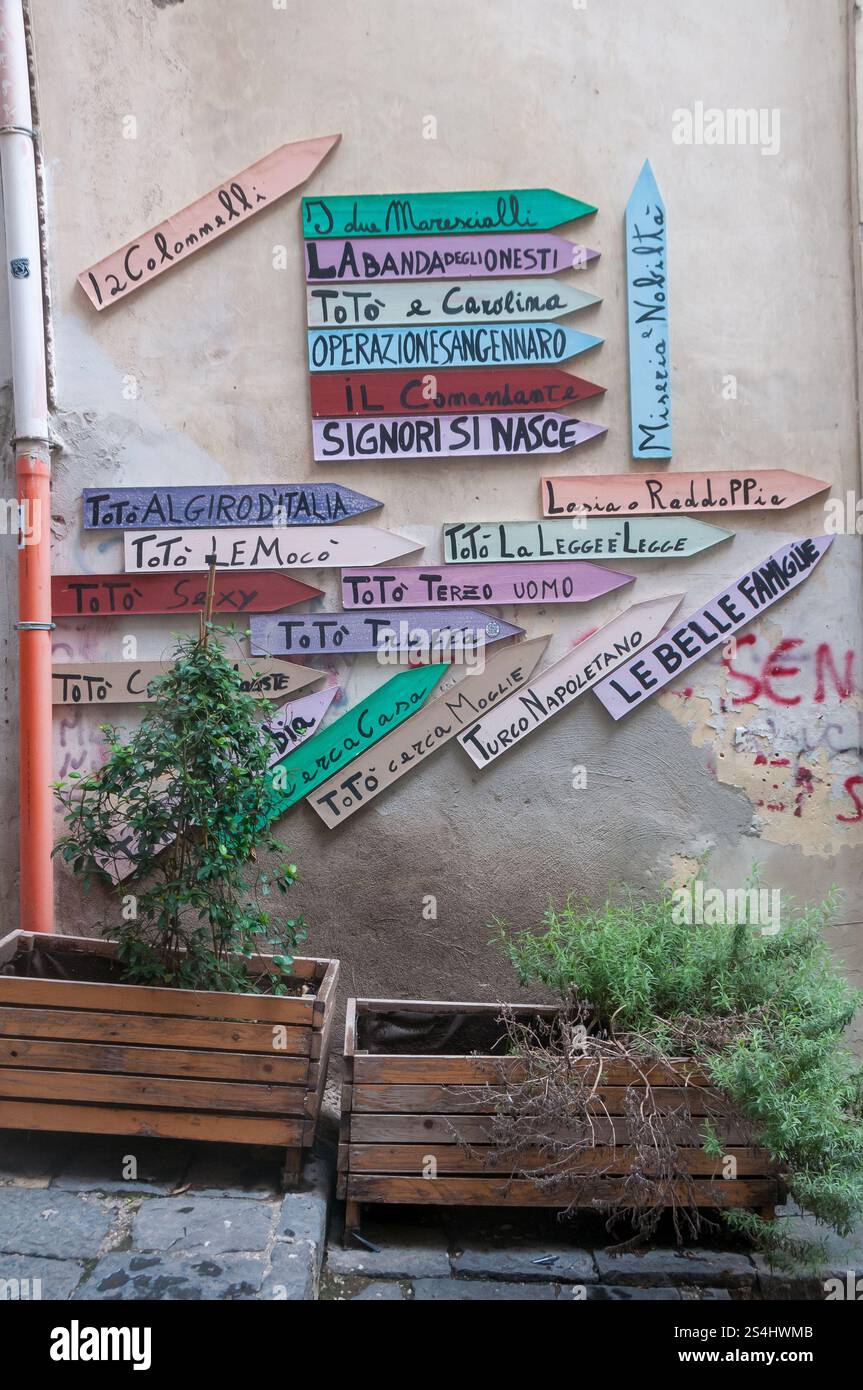 I 2 Colonnelli
I due Marescialli
LA BANDA DEGLI ONESTI
TOTÒ e Carolina
OPERAZIONE SAN GENNARO
iL Comandante
SIGNORI SI NASCE
Miseria e Nobiltà
TOTÒ AL GIRO D'ITALIA
Lasia o RaddoPPia
TOTÒ LE Mocò
TOTÒ La LEGGE È LEGGE
TOTÒ Sexy
TOTÒ TERZO UOMO
TOTÒ
LE BELLE FAMIGLIE
TOTÒ
TURCO NAPOLETANO
TOTÒ cerca MOGLIE
cerca Casa
SEN
alamy
Image ID: 2S4HWMB
www.alamy.com